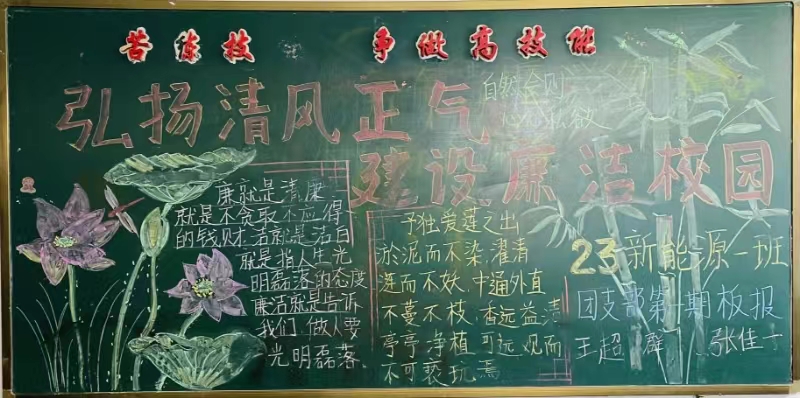 苦练技 争做高技能
弘扬清风正气
建设廉洁校园
自然
私欲
廉就是清廉
就是不贪取不应得
的钱财.洁就是洁白
就是指人生光
明磊落的态度
廉洁就是告诉
我们.做人要
光明磊落.
予独爱莲之出
淤泥而不染,濯清
涟而不妖,中通外直
不蔓不枝,香远益清
亭亭净植 可远观而
不可亵玩焉
23新能源一班
团支部第一期板报
王超群 张佳一